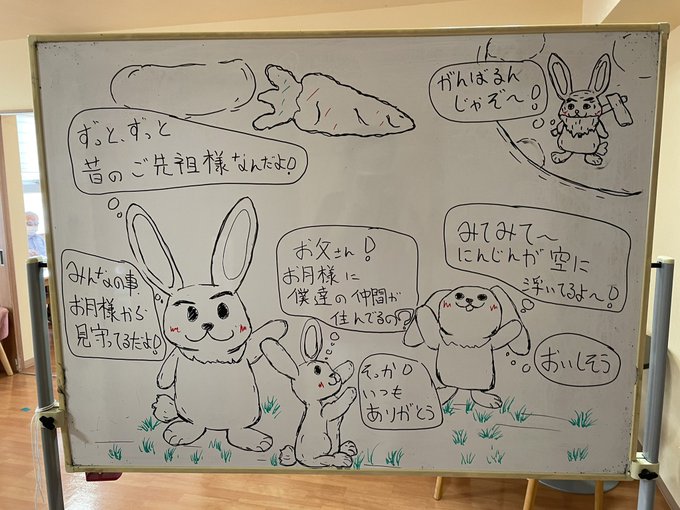 がんばるん
じゃぞ〜!
ずっと、ずっと
昔のご先祖様なんだよ!
みんなの事
お月様から
見守ってるだよ!
お父さん!
お月様に
僕達の仲間が
住んでるの?
そっか!
いつも
ありがとう
みてみて〜
にんじんが空に
浮いてるよ〜!
おいしそう